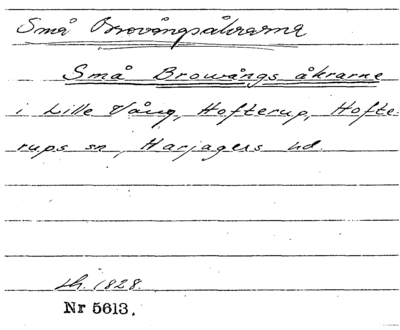 Små Brovångsåkrarna
Små Browångs åkrarne
i Lille Vång, Hofterup, Hofte-
rups sn, Harjagers hd.
Lh. 1828.
Nr 5613.